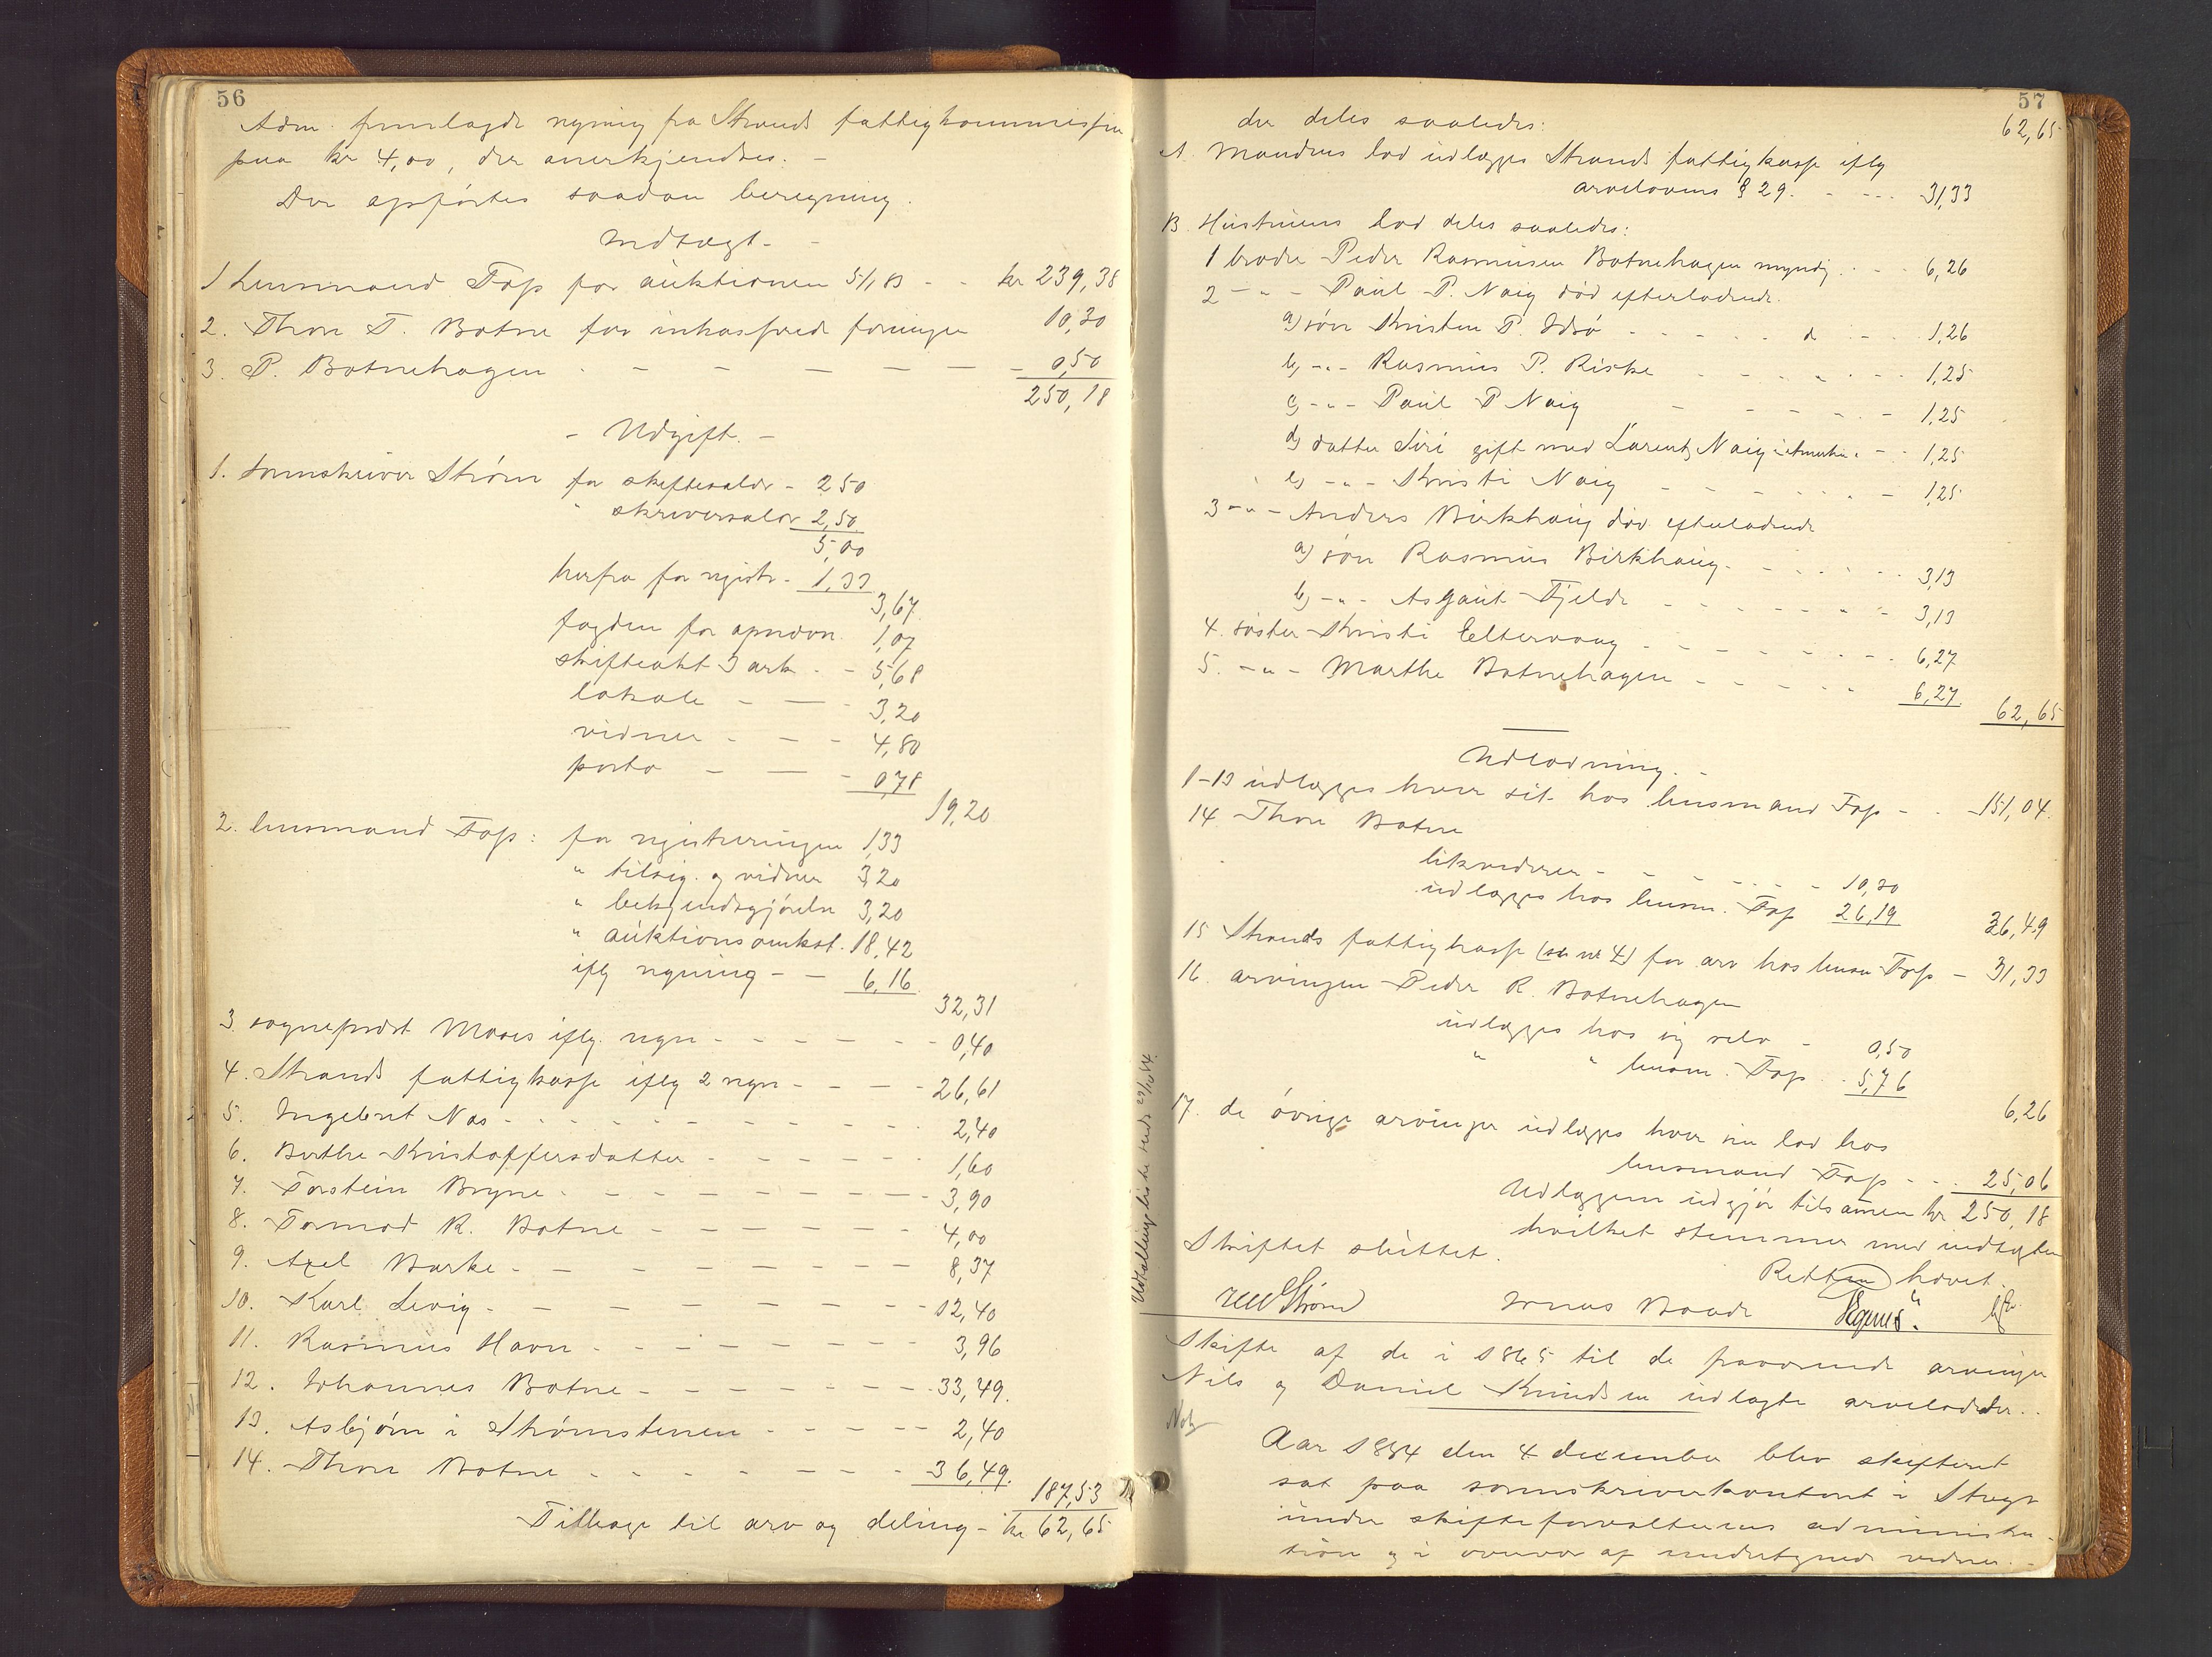 56
Adm. fremlagde regning fra Strands fattigkommission
paa kr 4,00, der anerkjendtes. -
Der opførtes saadan beregning.
Indtægt.
1 Lensmand Fop for auktionen 5/1 83 - - kr 239,38
2. Thore T. Botne for inkasserede fordringer 10,30
3. P. Botnehagen - - - - - - 0,50
250,18
- Udgift. -
1. Sorenskriver Strøm for skiftesalær - 2 50
" skriversalær 2,50
5,00
herfra for registr. - 1,33
3,67
fogden for opnævn. 1,07
skifteakt 3 ark - - 5,68
lokale - - - 3,20
vidner - - - 4,80
porto - - - 0,78
19,20
2. lensmand Fop: for registreringen 1,33
" tilsig. og vidner 3,20
" bekjendtgjørelse 3,20
" auktionsomkost. 18,42
iflg regning - - 6,16
32,31
3. sogneprest Moses iflg. regn - - - - - 0,40
4. Strands fattigkasse iflg 2 regn - - - - 26,61
5. Ingebret Næs - - - - - - - 2,40
6. Berthe Kristoffersdatter - - - - - 1,60
7. Torstein Bryne - - - - - - - 3,90
8. Tormod R. Botne - - - - - - 4,00
9. Axel Barke - - - - - - - 8,37
10. Karl Levig - - - - - - - 12,40
11. Rasmus Havn - - - - - - 3,96
12. Johannes Botne - - - - - - 33,49.
13. Asbjørn i Strømstenen - - - - 2,40
14. Thore Botne - - - - - - 36,49.
187,53
Tilbage til arv og deling - kr 62,65
57
der deles saaledes: 62,65
A. Mandens lod udlægges Strands fattigkasse iflg
arvelovens § 29. - - - 31,33
B. Hustruens lod deles saaledes:
1 broder Peder Rasmusen Botnehagen myndig - - - 6,26
2 - " - Paul P. Naig død efterladende.
a) søn Kristen P. Idsø - - - - - - 1,26
b) - " - Rasmus P. Riske - - - - 1,25
c) - " - Paul P Naig - - - - - 1,25
d) datter Siri gift med Larents Naig - - 1,25
e) - " - Kristi Naig - - - - - - 1,25
3 - " - Anders Birkhaug død efterladende
a) søn Rasmus Birkhaug - - - - - 3,13
b) - " - Asgaut Fjelde - - - - - 3,13
4. søster Kristi Eltervaag - - - - - - 6,27
5. - " - Marthe Botnehagen - - - - - 6,27
62,65
Udlodning. -
1-13 udlægges hver sit hos lensmand Fop - - 151,04.
14 Thore Botne
likviderer - - - - - - 10,30
udlægges hos lensm. Fop 26,19 36,49
15 Strands fattigkasse (se nr 4) for arv hos lensm Fop - 31,33
16. arvingen Peder R. Botnehagen
udlægges hos sig selv - 0,50
" " lensm. Fop - 5,76
6,26
17. de øvrige arvinger udlægges hver sin lod hos
lensmand Fop - - - 25,06
Udlæggene udgjør tilsamen kr 250,18
hvilket stemmer med indtægten
Skiftet sluttet.
Retten hævet.
Strøm Jonas Baade
Udtallingsliste sendt 23/12 84.
Skifte af de i 1865 til de fraværende arvinger
Nils og Daniel Knudsen udlagte arvelodder.
Aar 1884 den 4 december blev skifteret
sat paa sorenskriverkontoret i Stage
under skifteforvalterens administra-
tion og i overvær af undertegnede vidner. -